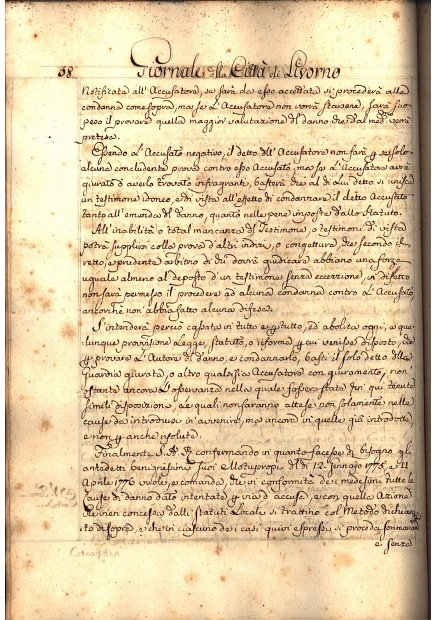 38. Giornale della Città di Livorno
Notificata all'Accusatore, se sarà da esso accettata si procederà alla
condanna come sopra, ma se l'Accusatore non vorrà starsene, sarà suo
peso il provare quella maggior valutazione di danno che dal med.mo verrà
pretesa.
Essendo l'Accusato negativo, il detto dell'Accusatore non farà per se solo
alcuna concludente prova contro esso Accusato, ma se l'Accusatore avrà
giurato d'averlo trovato infragranti, basterà che al di lui detto si unisca
un testimone idoneo, e di vista all'effetto di condannare il detto Accusato
tanto all'emenda del danno, quanto nelle pene imposte dallo Statuto.
All'inabilità o total mancanza del Testimone, o testimoni di vista
potrà supplirsi colla prova d'altri indizi, o congetture, che secondo il
retto, e prudente arbitrio di chi dovrà giudicare abbiano una forza
uguale almeno al deposto d'un testimone senza eccezzione, in difetto
non sarà permesso il procedere ad alcuna condanna contro l'Accusato,
ancorchè non abbia fatto alcuna difesa.
S'intenderà perciò cassata in tutto e per tutto, ed abolita ogni, e qua-
lunque provvisione Legge, statuto, o riforma per cui venisse disposto, che
per provare l'Autore del danno, e condannarlo, basti il solo detto della
Guardia giurata, o altro qualsisia Accusatore con giuramento, non
ostante ancora l'osservanza nella quale fossero state fin' qui tenute
simili disposizioni, le quali non saranno attese non solamente nelle
cause da introdursi in avvenire, ma ancora in quelle già introdotte,
e non per anche risolute.
Finalmente S. A. R. confermando in quanto facesse di bisogno gli
antedetti benignissimi suoi Motupropri del dì 12. Gennajo 1775, e 11
Aprile 1776 vuole, e comanda, che in conformità dei medesimi tutte le
Cause di danno dato intentate per via di accusa, e con quella Azione
che vien concessa dalli statuti Locali si trattino col Metodo dichiara-
to di sopra, e che in ciascuno dei casi quivi espressi si proceda sommariam.te
e senza